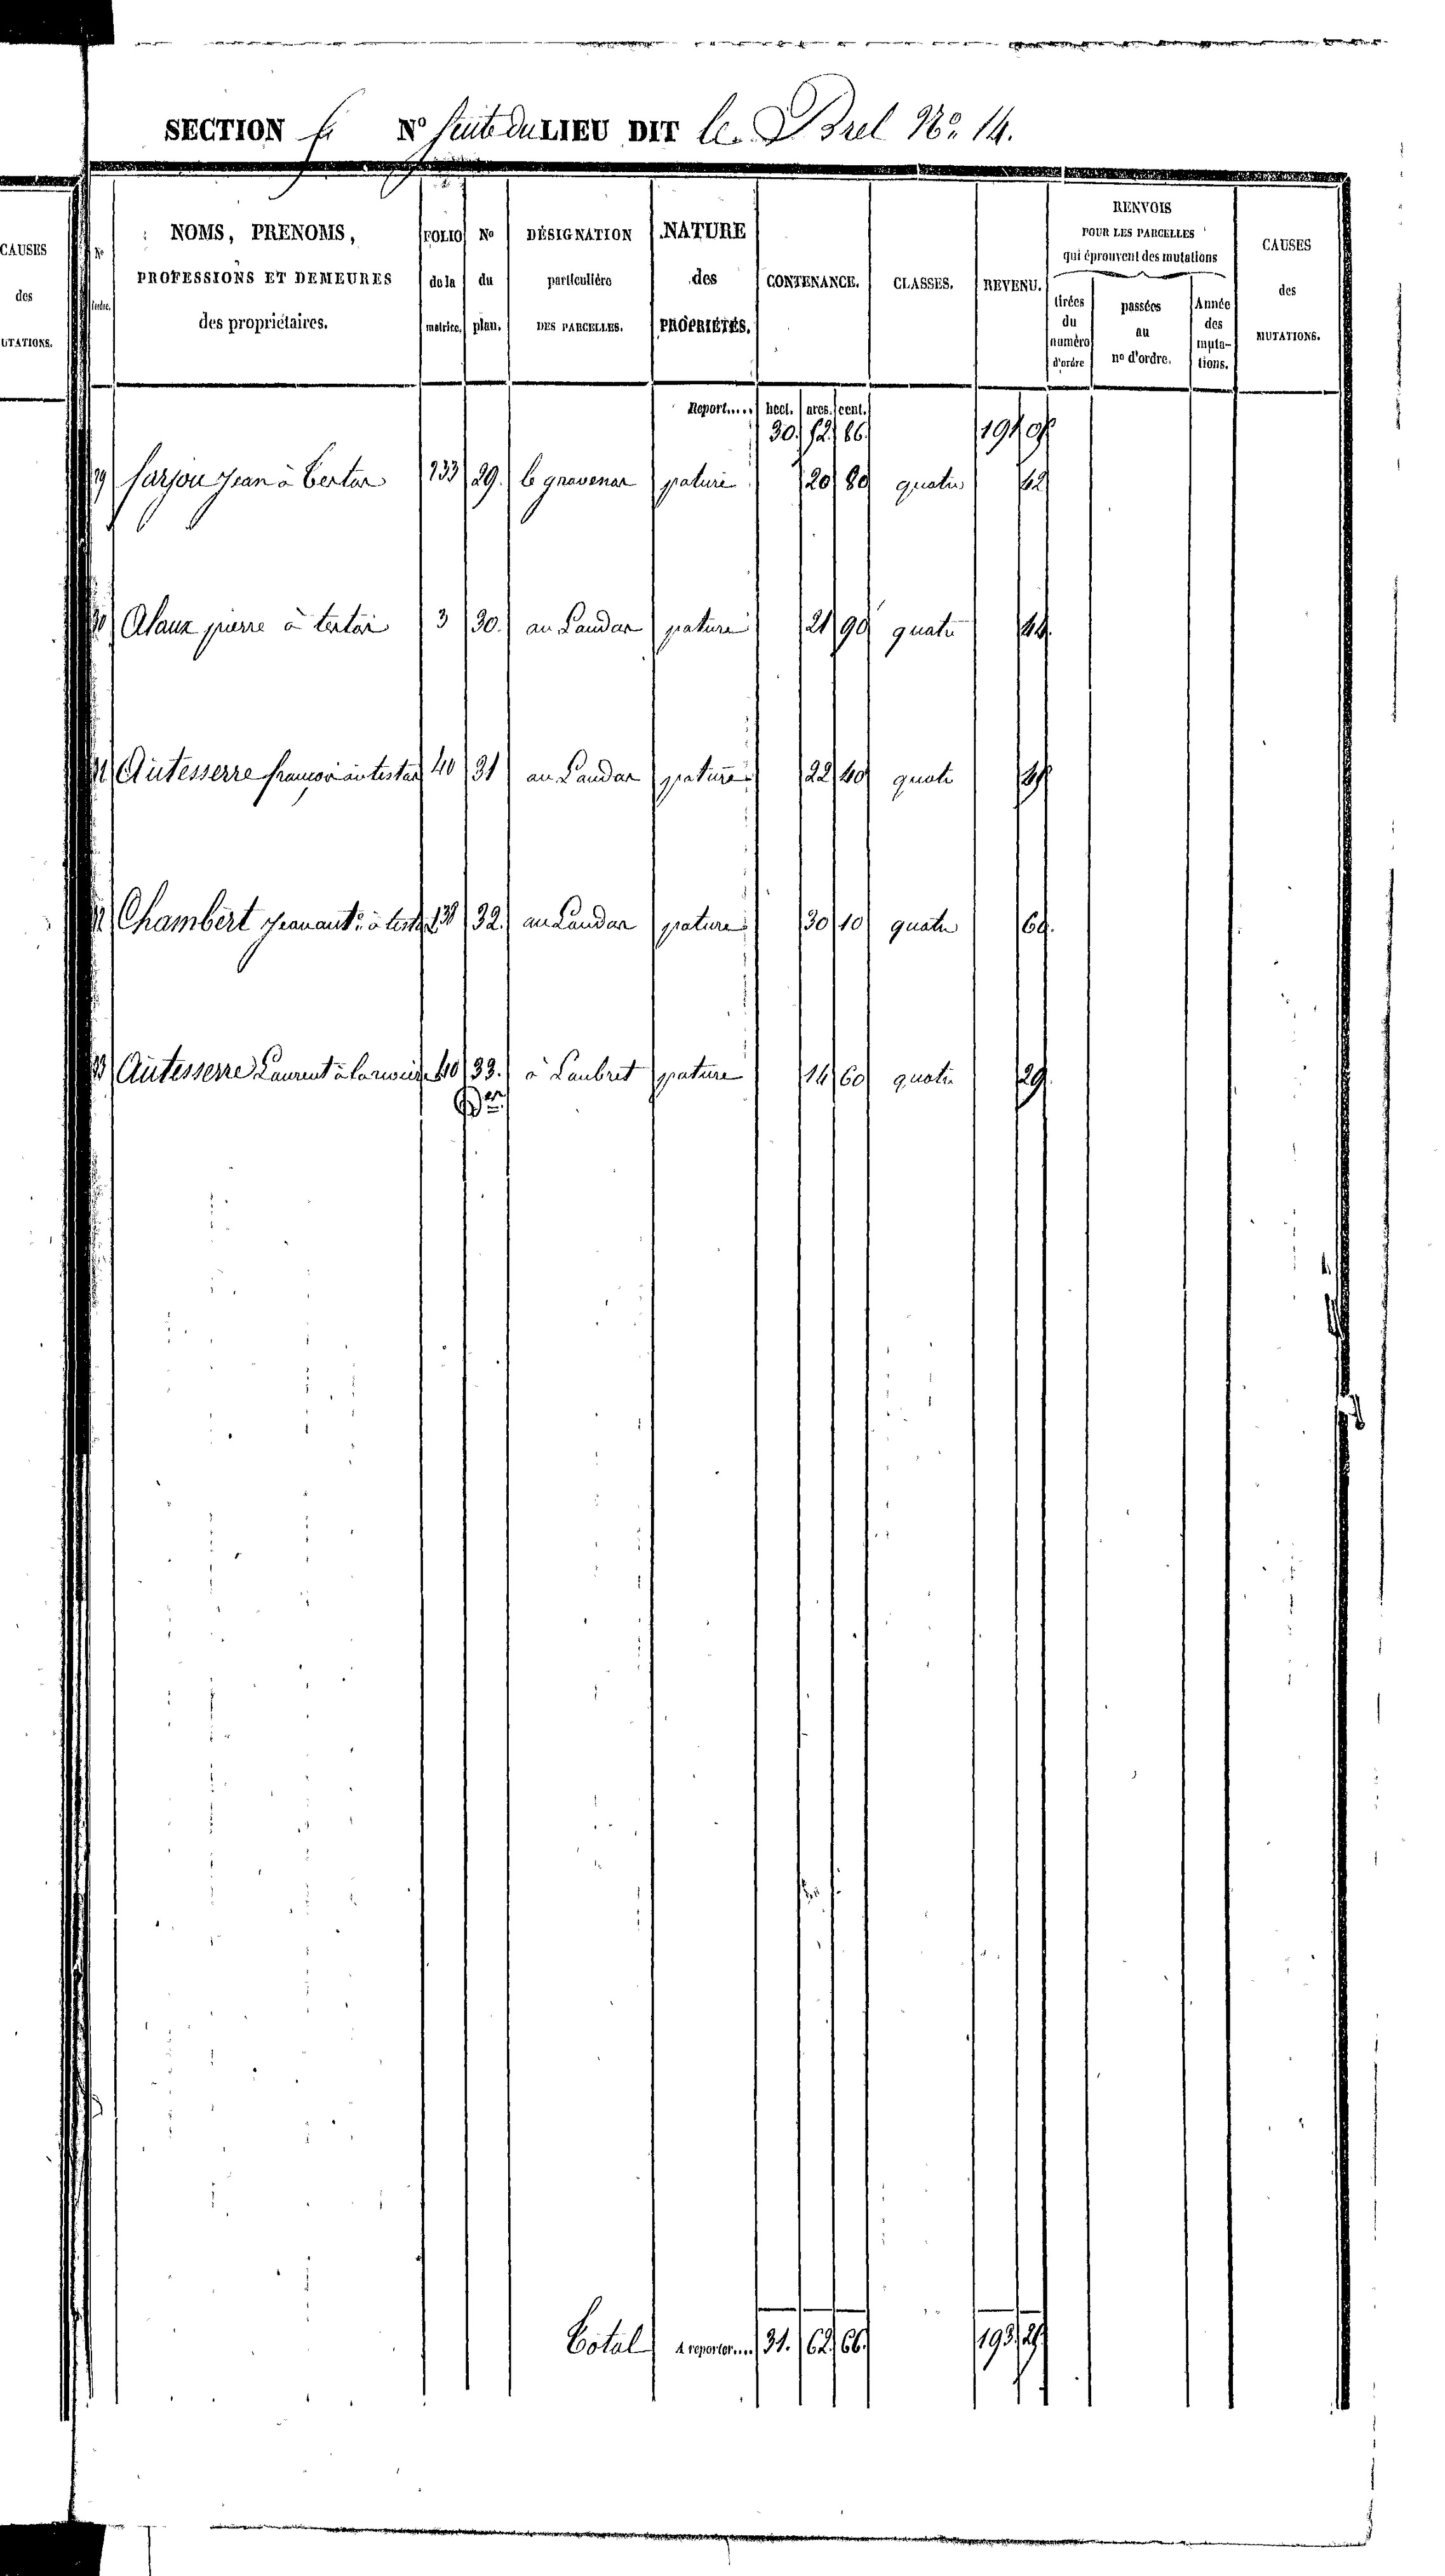 SECTION G N° suite du LIEU DIT le Brel N°. 14.
CAUSES
des
UTATIONS.
N°
NOMS, PRENOMS,
PROFESSIONS ET DEMEURES
des propriétaires.
FOLIO
de la
matrice.
N°
du
plan.
DÉSIGNATION
particulière
DES PARCELLES.
NATURE
des
PROPRIÉTÉS.
CONTENANCE.
CLASSES.
REVENU.
RENVOIS
POUR LES PARCELLES
qui éprouvent des mutations
tirées
du
numéro
d'ordre
passées
au
n° d'ordre.
Année
des
muta-
tions.
CAUSES
des
MUTATIONS.
Report..... hect. ares. cent.
30. 52. 86. 191 01
29 farjou Jean à 133 29. le gravenar pature 20 80 quatre 42
30 Alaux pierre à 3 30. au Landar pature 21 90 quatre 44.
31 Autesserre françois 40 31 au Landar pature 22 40 quatre 45
32 Chambert Jean ant.e à 138 32. au Landar pature 30 10 quatre 60.
33 Autesserre Laurent à 40 33. à Laubret pature 14 60 quatre 29.
Der
Total A reporter.... 31. 62. 66. 193. 21